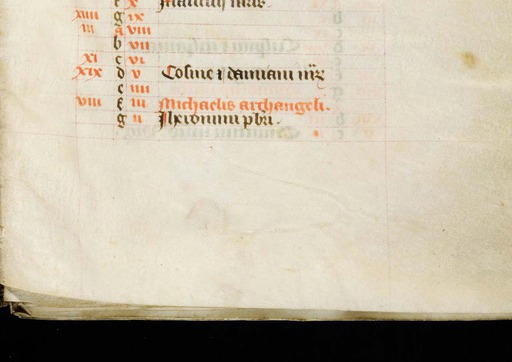 f x Mauricij mris.
xiiii g ix
iii a viii
b vii
xi c vi
xix d v Cosme ⁊ damiani mr̃
e iiii
viii f iii Michaelis archangeli.
g ii Jheronimi pbri.